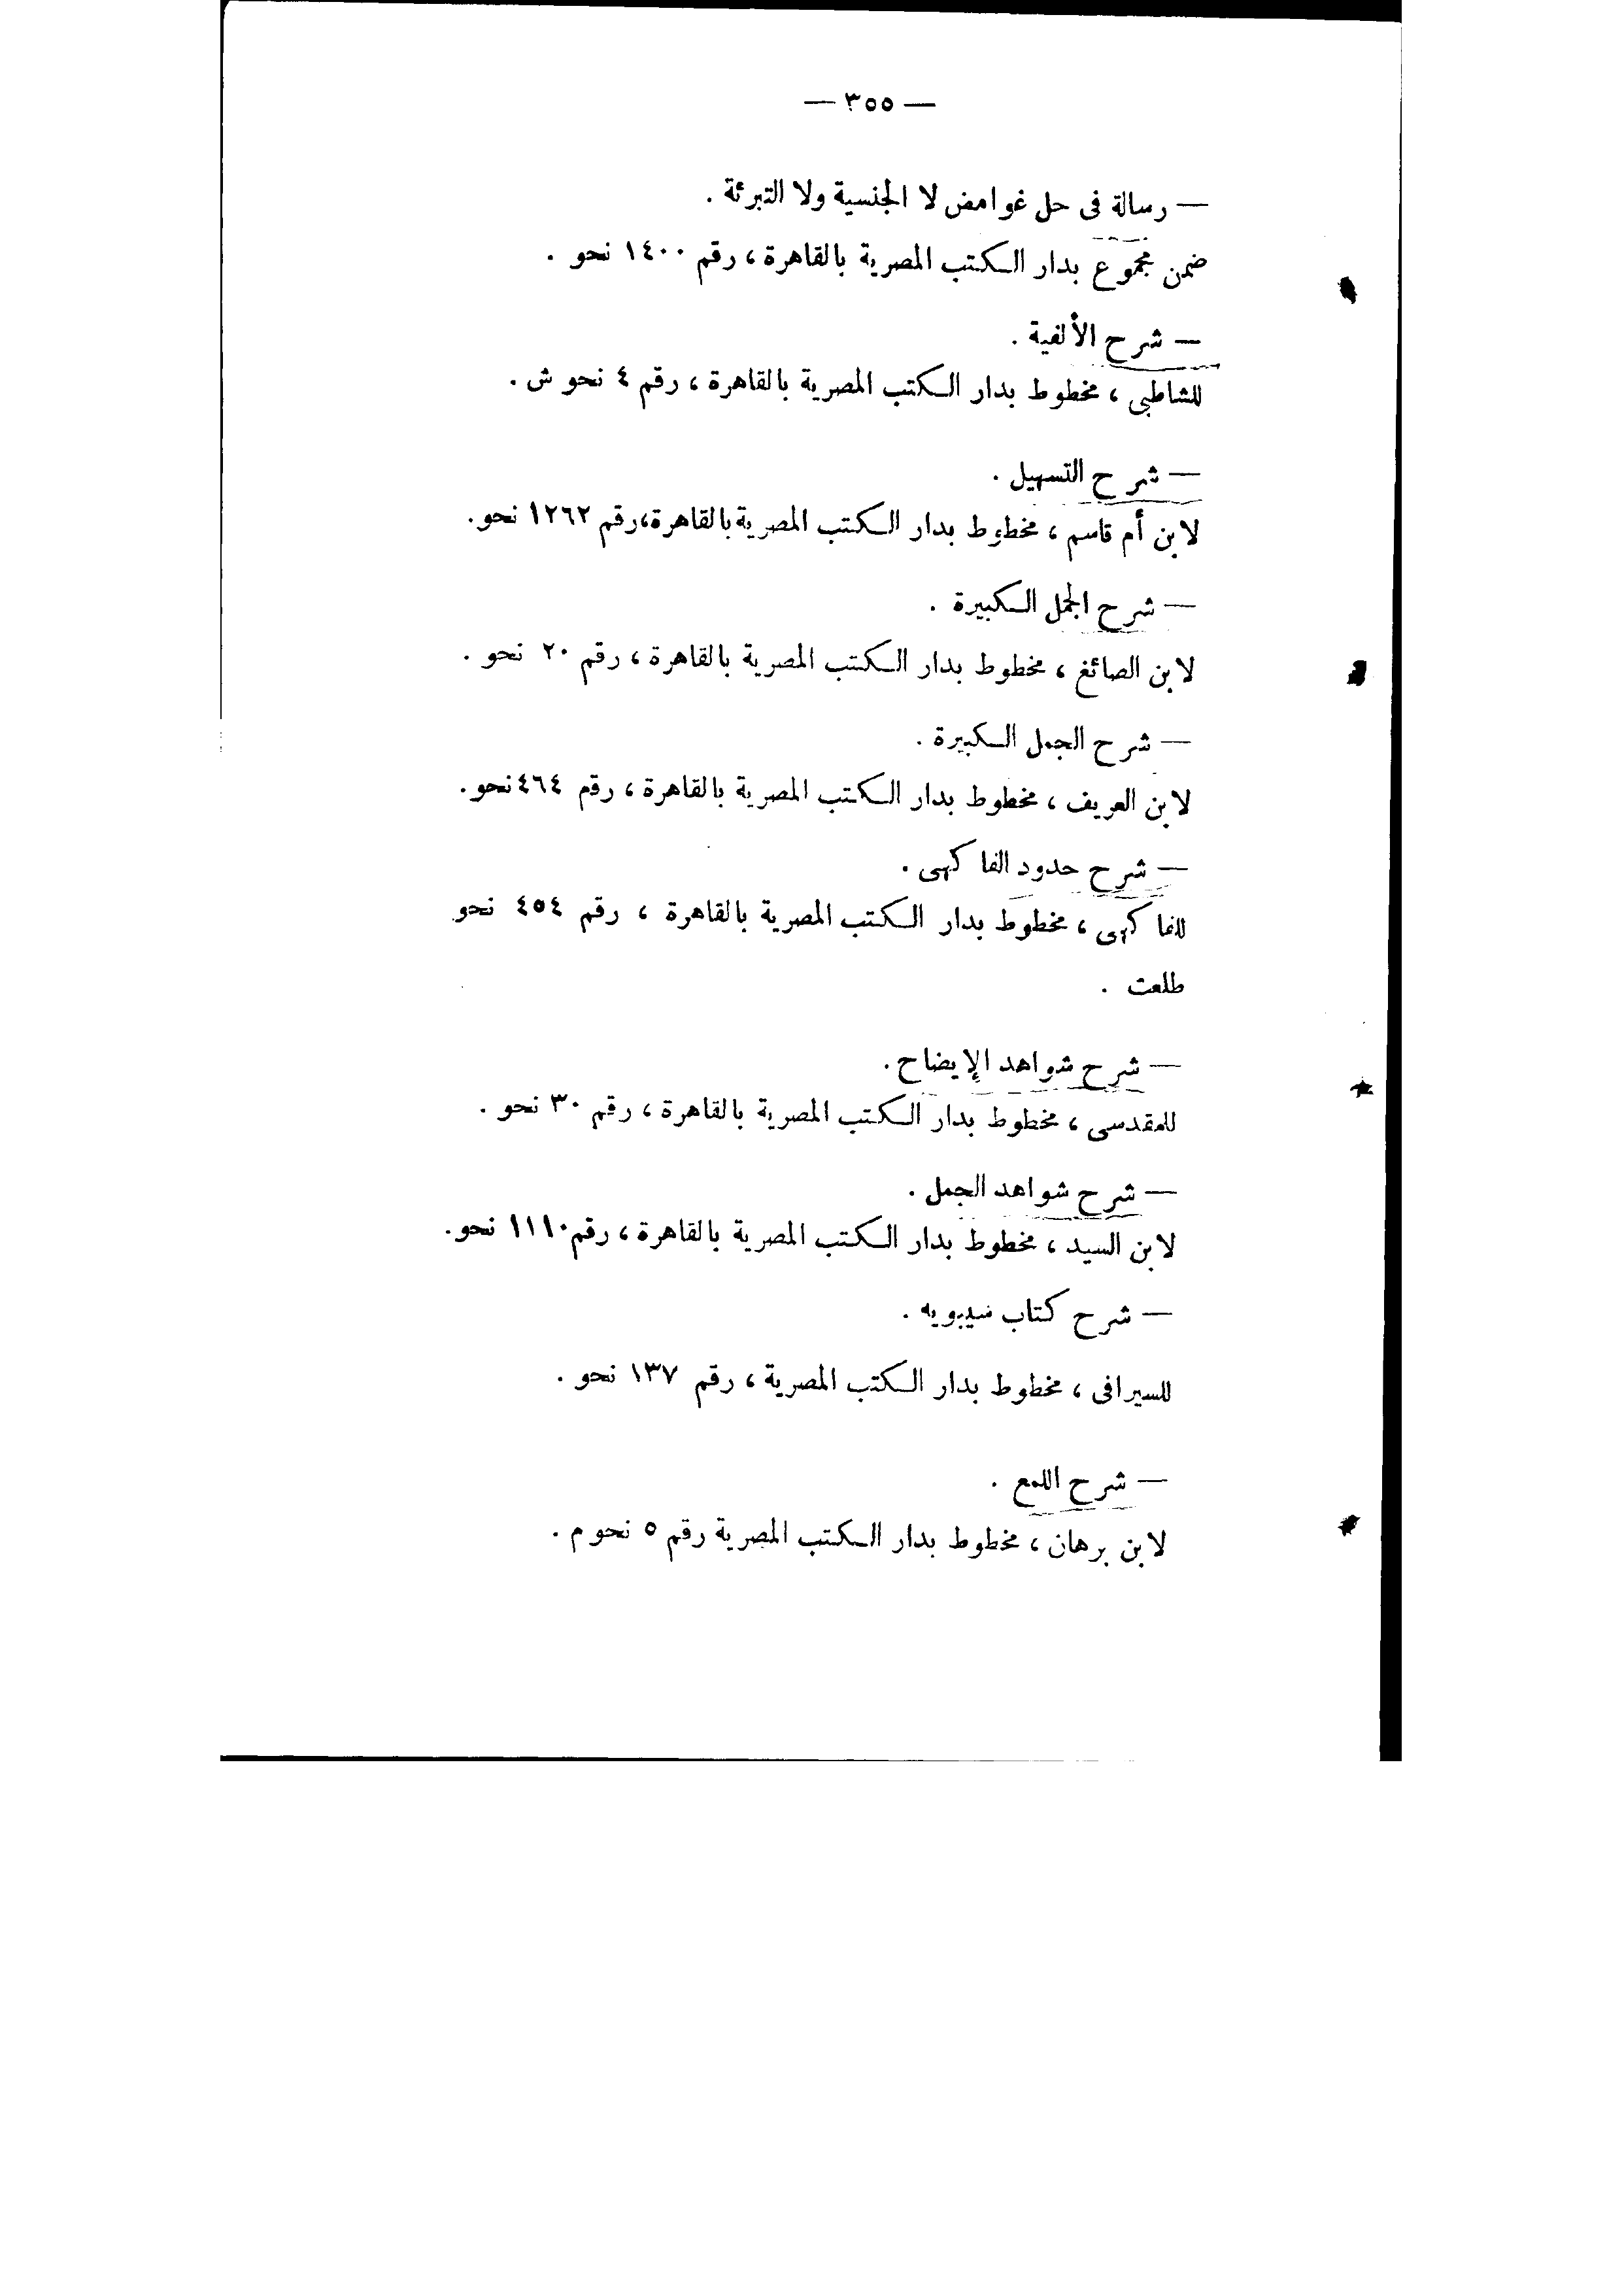 — ٣٥٥ —
— رسالة فى حل غوامض لا الجنسية ولا التبرئة .
ضمن مجموع بدار الكتب المصرية بالقاهرة ، رقم ١٤٠٠ نحو .
— شرح الألفية .
للشاطبى ، مخطوط بدار الكتب المصرية بالقاهرة ، رقم ٤ نحو ش .
— شرح التسهيل .
لابن أم قاسم ، مخطوط بدار الكتب المصرية بالقاهرة ، رقم ١٢٦٢ نحو .
— شرح الجمل الكبيرة .
لابن الصائغ ، مخطوط بدار الكتب المصرية بالقاهرة ، رقم ٢٠ نحو .
— شرح الجمل الكبيرة .
لابن العريف ، مخطوط بدار الكتب المصرية بالقاهرة ، رقم ٤٦٤ نحو .
— شرح حدود الفاكهى .
للفاكهى ، مخطوط بدار الكتب المصرية بالقاهرة ، رقم ٤٥٤ نحو
طلعت .
— شرح شواهد الإيضاح .
للمقدسى ، مخطوط بدار الكتب المصرية بالقاهرة ، رقم ٣٠ نحو .
— شرح شواهد الجمل .
لابن السيد ، مخطوط بدار الكتب المصرية بالقاهرة ، رقم ١١١٠ نحو .
— شرح كتاب سيبويه .
للسيرافى ، مخطوط بدار الكتب المصرية ، رقم ١٣٧ نحو .
— شرح اللمع .
لابن برهان ، مخطوط بدار الكتب المصرية رقم ٥ نحو م .